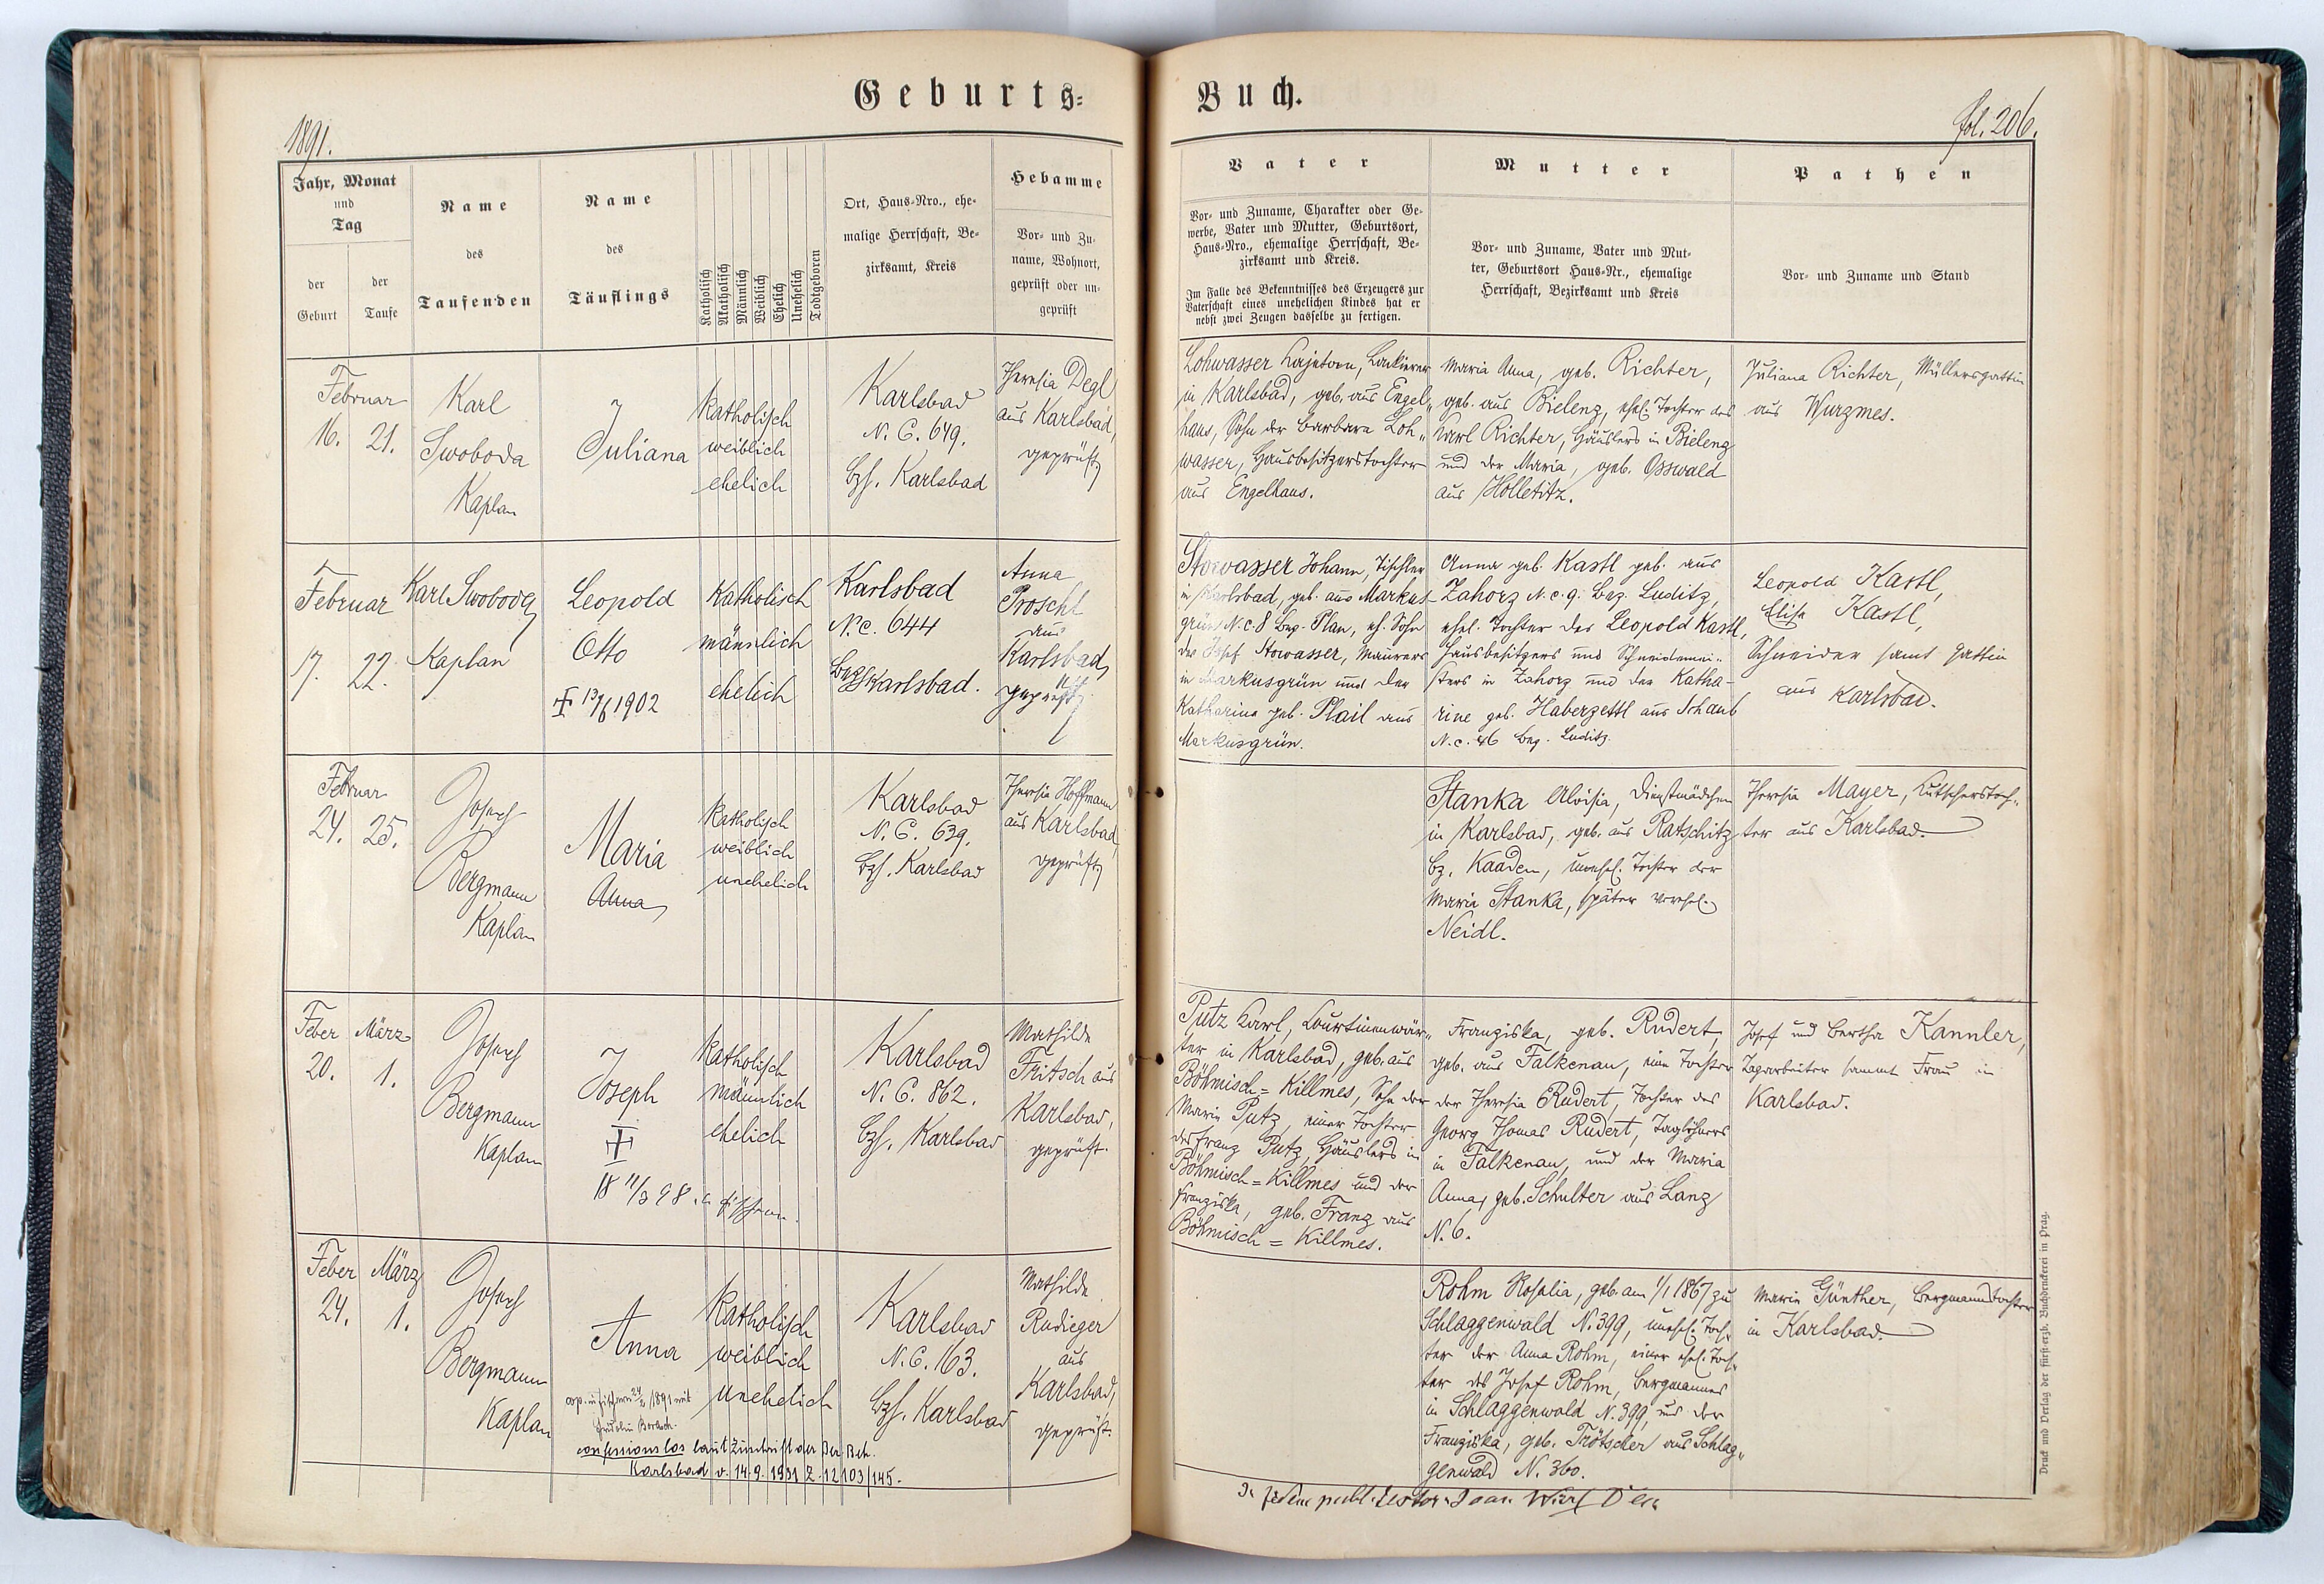 Geburts-Buch.
1891.
fol. 206.
Jahr, Monat
und
Tag
der
Geburt
der
Taufe
Name
des
Taufenden
Name
des
Täuflings
Katholisch
Akatholisch
Männlich
Weiblich
Ehelich
Unehelich
Todtgeboren
Ort, Haus-Nro., ehe-
malige Herrschaft, Be-
zirksamt, Kreis
Hebamme
Vor- und Zu-
name, Wohnort,
geprüft oder un-
geprüft
Vater
Vor- und Zuname, Charakter oder Ge-
werbe, Vater und Mutter, Geburtsort,
Haus-Nro., ehemalige Herrschaft, Be-
zirksamt und Kreis.
Im Falle des Bekenntnisses des Erzeugers zur
Vaterschaft eines unehelichen Kindes hat er
nebst zwei Zeugen dasselbe zu fertigen.
Mutter
Vor- und Zuname, Vater und Mut-
ter, Geburtsort Haus-Nr., ehemalige
Herrschaft, Bezirksamt und Kreis
Pathen
Vor- und Zuname und Stand
Februar
16. 21.
Karl
Swoboda
Kaplan
Juliana
katholisch
weiblich
ehelich
Karlsbad
N. C. 649.
Bzh. Karlsbad
Theresia Degl
aus Karlsbad,
geprüft
Lohwasser Kajetan, Lackierer
in Karlsbad, geb. aus Engel„
haus, Sohn der Barbara Loh„
wasser, Hausbesitzerstochter
aus Engelhaus.
Maria Anna, geb. Richter,
geb. aus Bielenz, ehel. Tochter des
Karl Richter, Häuslers in Bielenz
und der Maria, geb. Osswald
aus Holletitz.
Juliana Richter, Müllersgattin
aus Wurzmes.
Februar
17. 22.
Karl Swoboda
Kaplan
Leopold
Otto
1902
Katholisch
männlich
ehelich
Karlsbad
N. c. 644
Bzh Karlsbad.
Anna
Proschl
aus
Karlsbad,
geprüft
Stowasser Johann, Tischler
in Karlsbad, geb. aus Markus-
grün N. c. 8 Bez. Plan, eh. Sohn
des Josef Stowasser, Maurers
in Markusgrün und der
Katharina geb. Plail aus
Markusgrün.
Anna geb. Kastl geb. aus
Zahorz N. c. 9. Bez. Luditz,
ehel. Tochter des Leopold Kastl,
Hausbesitzers und Schneidermei„
sters in Zahorz und der Katha-
rine geb. Haberzettl aus Schaub
N. c. 46 Bez. Luditz.
Leopold Kastl,
Elise Kastl,
Schneider samt Gattin
aus Karlsbad.
Februar
24. 25.
Josef
Bergmann
Kaplan
Maria
Anna
katholisch
weiblich
unehelich
Karlsbad
N. C. 639.
Bzh. Karlsbad
Theresia Hoffmann
aus Karlsbad,
geprüft
Stanka Aloisia, Dienstmädchen
in Karlsbad, geb. aus Ratschitz
Bz. Kaaden, unehel. Tochter der
Maria Stanka, später verehel.
Neidl.
Theresia Mayer, Kutscherstoch„
ter aus Karlsbad.
Feber März
20. 1.
Josef
Bergmann
Kaplan
Joseph
katholisch
männlich
ehelich
Karlsbad
N. C. 862.
Bzh. Karlsbad
Mathilde
Fritsch aus
Karlsbad,
geprüft.
Putz Karl, Courtinenwär„
ter in Karlsbad, geb. aus
Böhmisch=Killmes, Sohn der
Maria Putz, einer Tochter
des Franz Putz, Häuslers in
Böhmisch=Killmes und der
Franziska, geb. Franz aus
Böhmisch=Killmes.
Franziska, geb. Rudert,
geb. aus Falkenau, eine Tochter
der Theresia Rudert, Tochter des
Georg Thomas Rudert, Taglöhners
in Falkenau, und der Maria
Anna, geb. Schulter aus Lanz
N. 6.
Josef und Bertha Kannler,
Tagarbeiter sammt Frau in
Karlsbad.
Feber März
24. 1.
Josef
Bergmann
Kaplan
Anna
confessionslos laut Zuschrift der Bez. Beh.
Karlsbad v. 14.9.1931 Z. 12103/145.
Katholisch
weiblich
unehelich
Karlsbad
N. C. 163.
Bzh. Karlsbad
Mathilde
Rudieger
aus
Karlsbad,
geprüft.
Rohm Rosalia, geb. am 1/1 1867 zu
Schlaggenwald N. 399, unehel. Toch„
ter der Anna Rohm, einer ehel. Toch„
ter des Josef Rohm, Bergmannes
in Schlaggenwald N. 399, und der
Franziska, geb. Trötscher aus Schlag„
genwald N. 360.
Maria Günther, Bergmannstochter
in Karlsbad.
Druck und Verlag der fürst-erzb. Buchdruckerei in Prag.